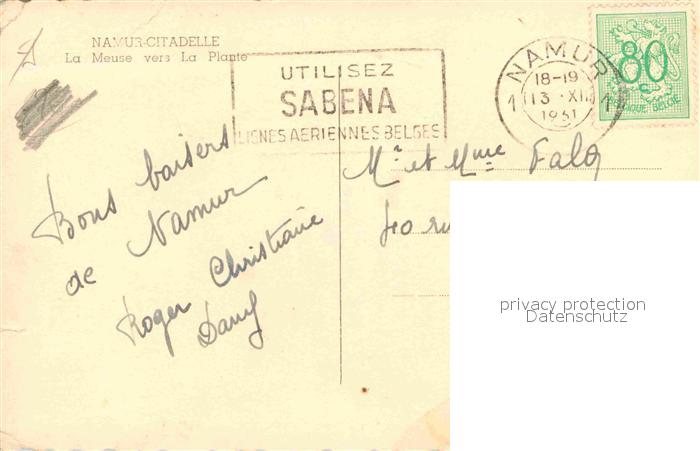 NAMUR-CITADELLE
La Meuse vers La Plante
UTILISEZ
SABENA
LIGNES AERIENNES BELGES
NAMUR
18-19
13 XII
1961
1 1
80
BELGIE
Bons baisers
de Namur
Roger Christiane
Dany
Mr et Mme
40 ru
privacy protection
Datenschutz